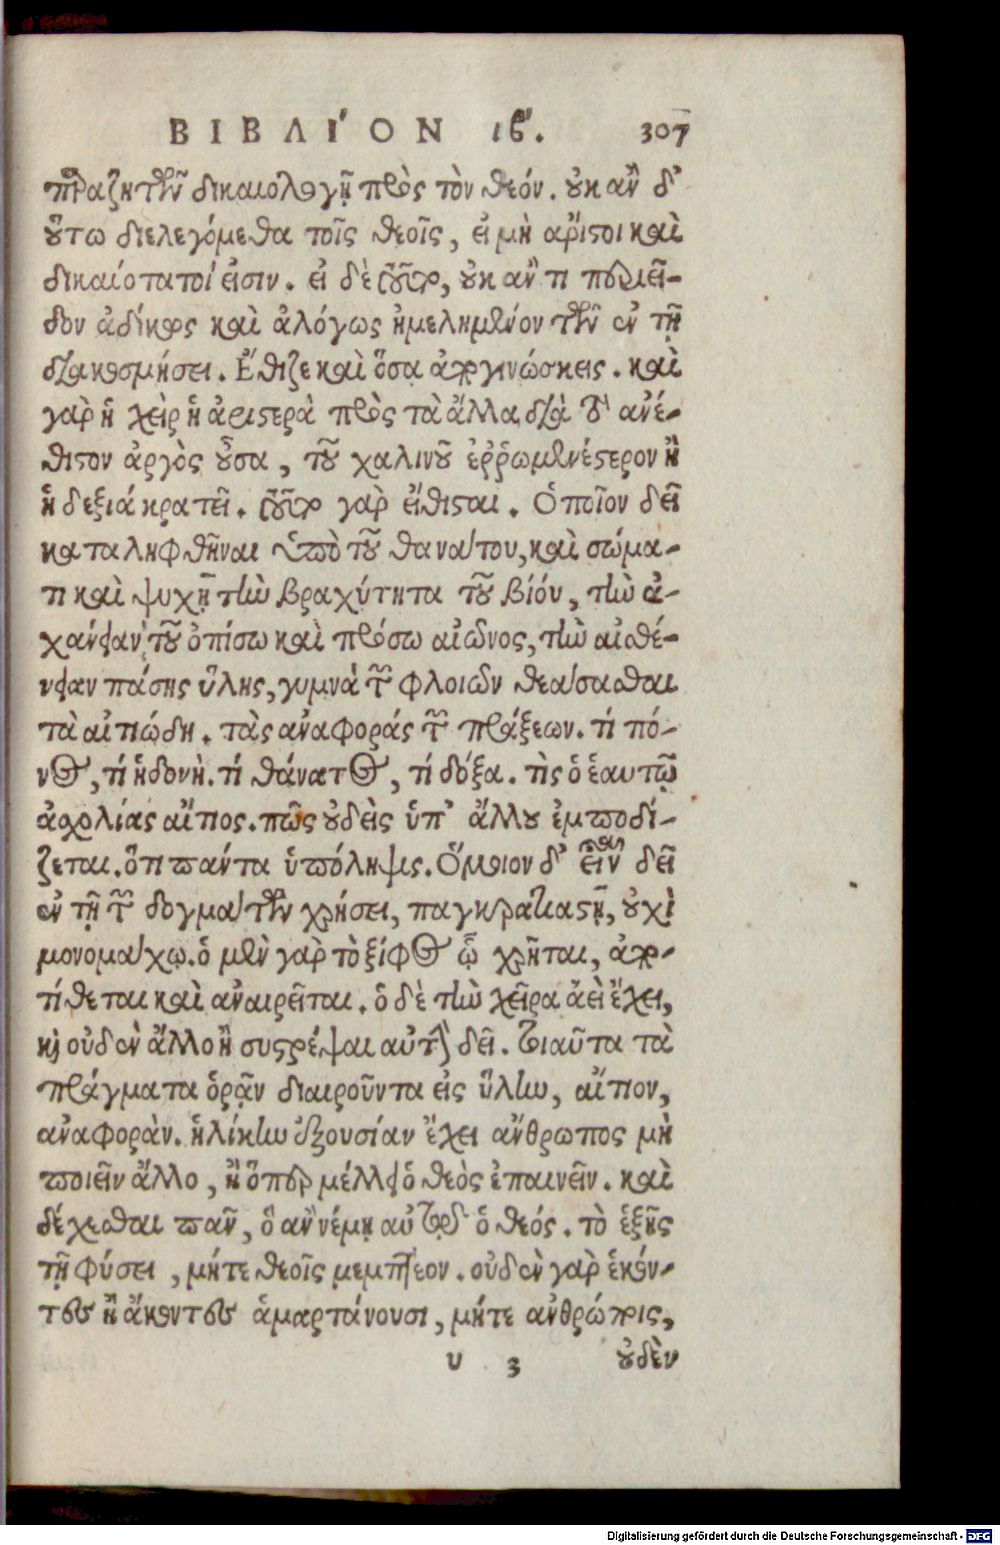 ΒΙΒΛΙ´ΟΝ ιβ´. 307
παραζητῶν δικαιολογῇ πρὸς τὸν θεόν. οὐκ ἂν δ'
οὕτω διελεγόμεθα τοῖς θεοῖς, εἰ μὴ ἄριστοι καὶ
δικαιότατοί εἰσιν. εἰ δὲ τοῦτο, οὐκ ἄν τι περιεῖ-
δον ἀδίκως καὶ ἀλόγως ἠμελημένον τῶν ἐν τῇ
διακοσμήσει. Ἔθιζε καὶ ὅσα ἀπογινώσκεις. καὶ
γὰρ ἡ χεὶρ ἡ ἀριστερὰ πρὸς τὰ ἄλλα διὰ τὸ ἀνέ-
θιστον ἀργὸς οὖσα, τοῦ χαλινοῦ ἐῤῥωμενέστερον ἢ
ἡ δεξιά κρατεῖ. τοῦτο γὰρ εἴθισται. Ὁποῖον δεῖ
καταληφθῆναι ὑπὸ τοῦ θανάτου, καὶ σώμα-
τι καὶ ψυχῇ τὴν βραχύτητα τοῦ βίου, τὴν ἀ-
χάνειαν τοῦ ὀπίσω καὶ πρόσω αἰῶνος, τὴν ἀσθέ-
νειαν πάσης ὕλης, γυμνὰ τῶν φλοιῶν θεάσασθαι
τὰ αἰτιώδη. τὰς ἀναφορὰς τῶν πράξεων. τί πό-
νος, τί ἡδονὴ. τί θάνατος, τί δόξα. τὶς ὁ ἑαυτῷ
ἀσχολίας αἴτιος. πῶς οὐδεὶς ὑπ' ἄλλου ἐμποδί-
ζεται. ὅτι πάντα ὑπόληψις. Ὅμοιον δ' εἶναι δεῖ
ἐν τῇ τῶν δογμάτων χρήσει, παγκρατιαστῇ, οὐχὶ
μονομάχῳ. ὁ μὲν γὰρ τὸ ξίφος ᾧ χρῆται, ἀπο-
τίθεται καὶ ἀναιρεῖται. ὁ δὲ τὴν χεῖρα ἀεὶ ἔχει,
καὶ οὐδὲν ἄλλο ἢ συστρέψαι αὐτὴν δεῖ. Τοιαῦτα τὰ
πράγματα ὁρᾷν διαιροῦντα εἰς ὕλην, αἴτιον,
ἀναφορὰν. ἡλίκην ἐξουσίαν ἔχει ἄνθρωπος μὴ
ποιεῖν ἄλλο, ἢ ὅπερ μέλλει ὁ θεὸς ἐπαινεῖν. καὶ
δέχεσθαι πᾶν, ὃ ἂν νέμῃ αὐτῷ ὁ θεός. τὸ ἑξῆς
τῇ φύσει, μήτε θεοῖς μεμπτέον. οὐδὲν γὰρ ἑκόν-
τες ἢ ἄκοντες ἁμαρτάνουσι, μήτε ἀνθρώποις,
υ 3 οὐδὲν
Digitalisierung gefördert durch die Deutsche Forschungsgemeinschaft - DFG